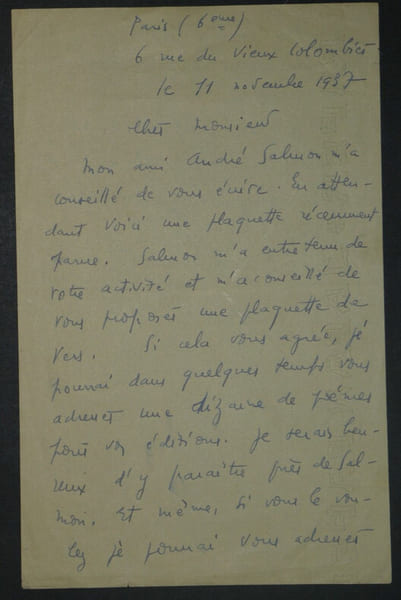 Paris (6ème)
6 rue du Vieux Colombier
le 11 novembre 1937
Cher Monsieur
Mon ami André Salmon m'a
conseillé de vous écrire. En atten-
dant voici une plaquette récemment
parue. Salmon m'a entretenu de
votre activité et m'a conseillé de
vous proposer une plaquette de
vers. Si cela vous agrée, je
pourrai dans quelques temps vous
adresser une dizaine de poèmes
pour vos éditions. Je serais heu-
reux d'y paraître près de Sal-
mon. Et même, si vous le vou-
lez je pourrai vous adresser